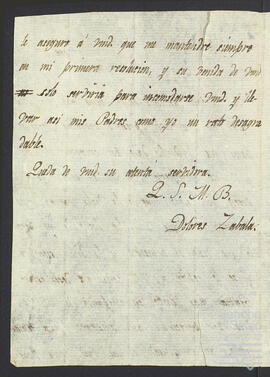 le aseguro á vmd. que me mantendre siempre
en mi primera resolucion, y su venida de vmd
solo serviria para incomodarse vmd. y lle-
var asi mis Padres como yo un rato desagra
dable.
Queda de vmd. su atenta servidora.
Q. S. M. B.
Dolores Zabala.